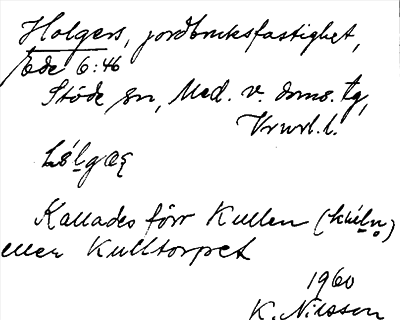 Holgers, jordbruksfastighet,
Ede 6:46
Stöde sn, Med. v. doms. tg,
Vnrl. l.
Kallades förr Kullen
eller Kulltorpet
1960
K. Nilsson